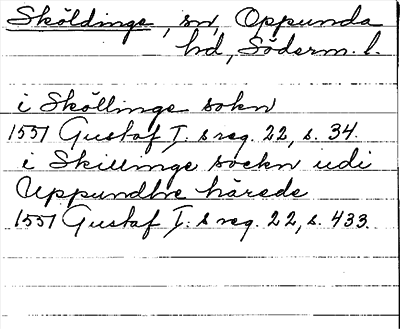 Sköldinge, sn, Oppunda
hd, Söderm. l.
i Sköllinge sokn
1551 Gustaf I:s reg. 22, s. 34.
i Skillinge sockn udi
Uppundhe härede
1551 Gustaf I:s reg. 22, s. 433.